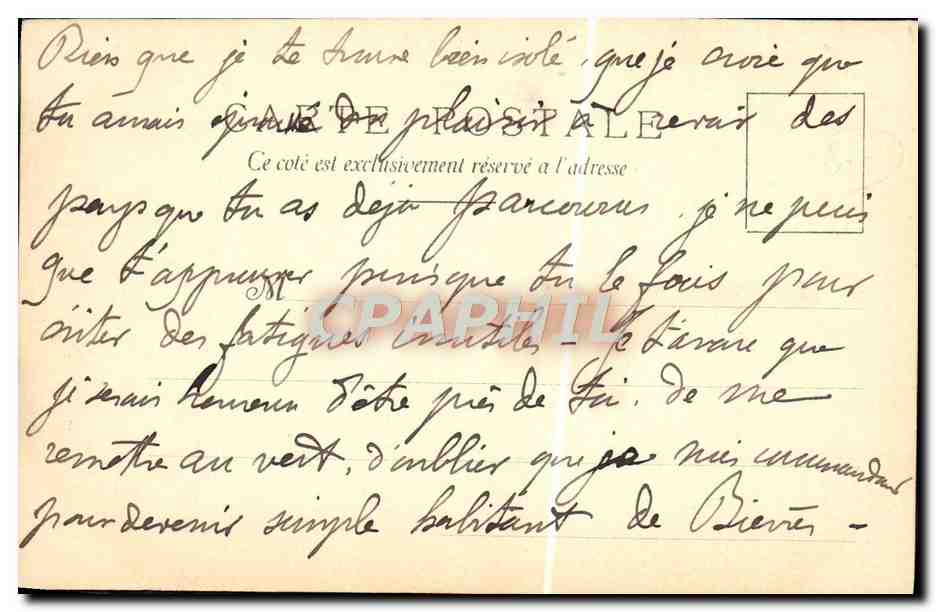 Bien que je te trouve bien isolé, que je croie que
CARTE POSTALE
tu aurais éprouvé du plaisir à revoir des
Ce coté est exclusivement réservé a l'adresse
pays que tu as déjà parcourus, je ne puis
que t'approuver puisque tu le fais pour
M
CPAPHIL
éviter des fatigues inutiles - Je t'avoue que
je serais heureux d'être près de toi, de me
remettre au vert, d'oublier que je suis commandant
pour devenir simple habitant de Bièvres -